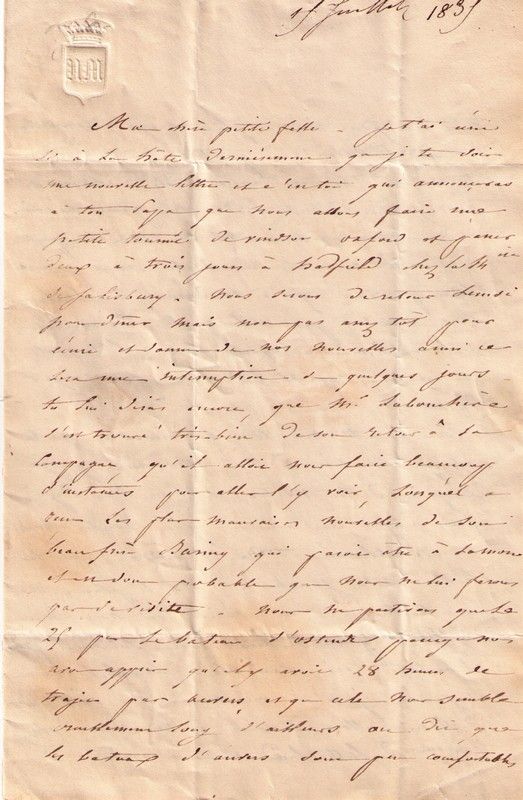 Juillet 183
Ma chère petite fille - je t'ai écrit
à la hâte dernièrement que je te dois
une nouvelle lettre et c'est toi qui annonceras
à ton Papa que nous allons faire une
petite tournée de windsor oxford et passer
deux à trois jours à hatfield chez la Mise
de Salisbury. nous serons de retour
pour diner mais non pas assez tôt pour
écrire et donner de nos nouvelles ainsi ce
sera une interruption de quelques jours
tu lui diras encore que Mr Labouchère
s'est trouvé très bien de son retour à la
Campagne qu'il alloit nous faire beaucoup
d'instances pour aller l'y voir, lorsqu'il a
reçu les plus mauvaises nouvelles de son
beau frère Baring qui paroit être à la mort
et est donc probable que nous ne lui ferons
pas de visite - nous ne partirons que le
25 par le bateau d'ostende parceque nous
avons appris qu'il y avoit 28 heures de
trajet par anvers et que cela nous semble
long d'ailleurs on dit que
les bateaux d'anvers sont peu confortables